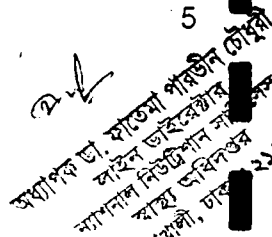 5
অধ্যাপক ডা. ফাতেমা পারভীন চৌধুরী
লাইন ডাইরেক্টর
ন্যাশনাল নিউট্রিশন
স্বাস্থ্য অধিদপ্তর